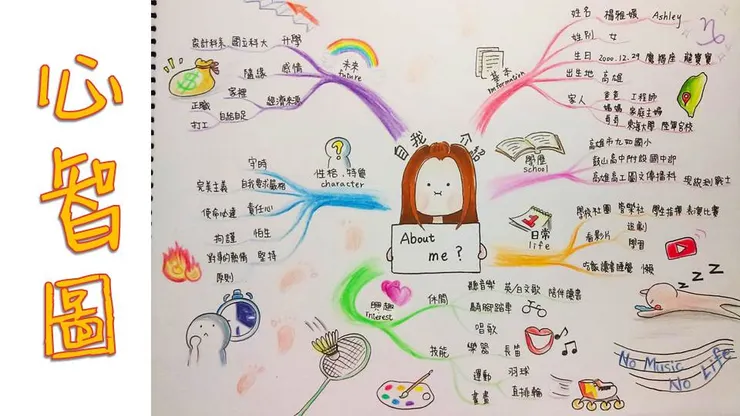 心智圖
自我介紹
About me?
基本
Information
姓名 楊雅媛 Ashley
性別 女
生日 2000.12.29 魔羯座 龍寶寶
出生地 高雄
家人
爸爸 工程師
媽媽 家庭主婦
哥哥 東海大學 陸軍官校
學歷
school
高雄市九如國小
鼓山高中附設國中部
高雄高工圖文傳播科
日常
life
學校社團 管樂社 學生指揮 表演比賽
看影片 追劇
學習
吃飯讀書睡覺 懶
興趣
Interest
休閒
聽音樂 英/日文歌 陪伴讀書
騎腳踏車
技能
唱歌
樂器 長笛
運動 羽球
直排輪
畫畫
No Music
No Life
ZZZ
性格.特質
character
守時
完美主義 自我要求嚴格
使命必達 責任心
拘謹 怕生
對事的熱情 堅持
原則
未來
future
設計科系 國立科大 升學
隨緣 感情
家裡 經濟來源
正職 自給自足
打工